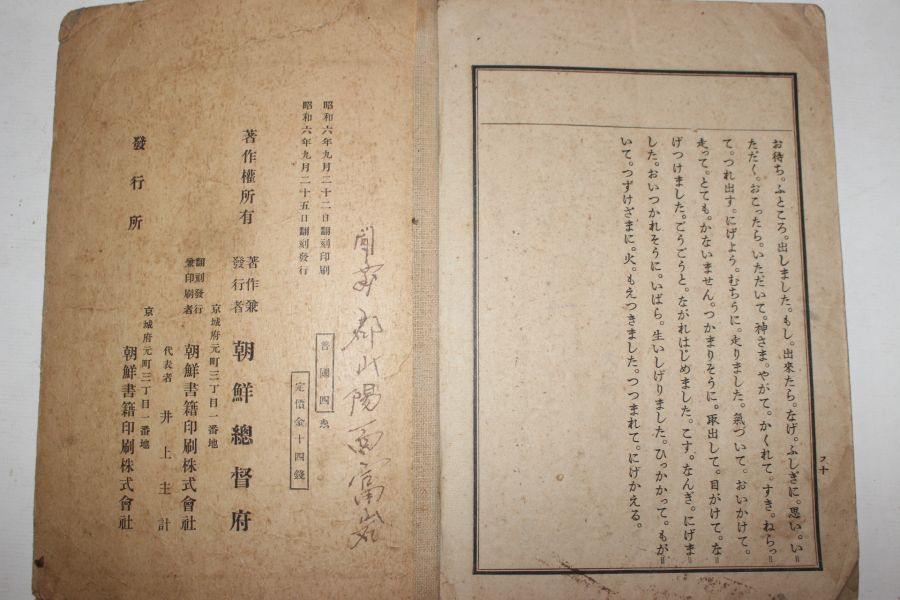 お待ち。ふところ。出しました。もし。出來たら。なげ。ふしぎに。思い。い=
ただく。おこったら。いただいて。神さま。やがて。かくれて。すき。ねらっ=
て。つれ出す。にげよう。むちうに。走りました。氣づいて。おいかけて。
走って。とても。かないません。つかまりそうに。取出して。目がけて。な=
げつけました。ごうごうと。ながれはじめました。こす。なんぎ。にげま=
した。おいつかれそうに。いばら。生いしげりました。ひっかかって。もが=
いて。つずけざまに。火。もえつきました。つつまれて。にげかえる。
ス十
郡山陽面富岩
普國四
定價金十四錢
昭和六年九月二十二日翻刻印刷
昭和六年九月二十五日翻刻發行
著作權所有
著作兼發行者 朝鮮總督府
京城府元町三丁目一番地
翻刻發行兼印刷者 朝鮮書籍印刷株式會社
代表者 井上主計
京城府元町三丁目一番地
發行所 朝鮮書籍印刷株式會社